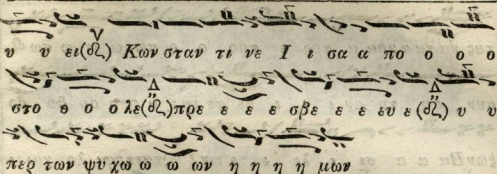 υ υ ει(δι) Κων σταν τι νε Ι ι σα α πο ο ο ο
στο ο ο ο λε(δι)πρε ε ε ε σβε ε ε ευ ε(δι) υ υ
περ των ψυ χω ω ω ων η η η η μων